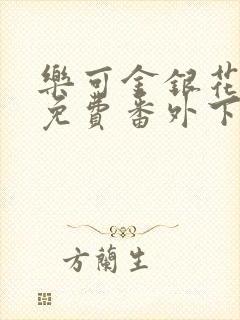 樂可金銀花
免費番外下
方蘭生